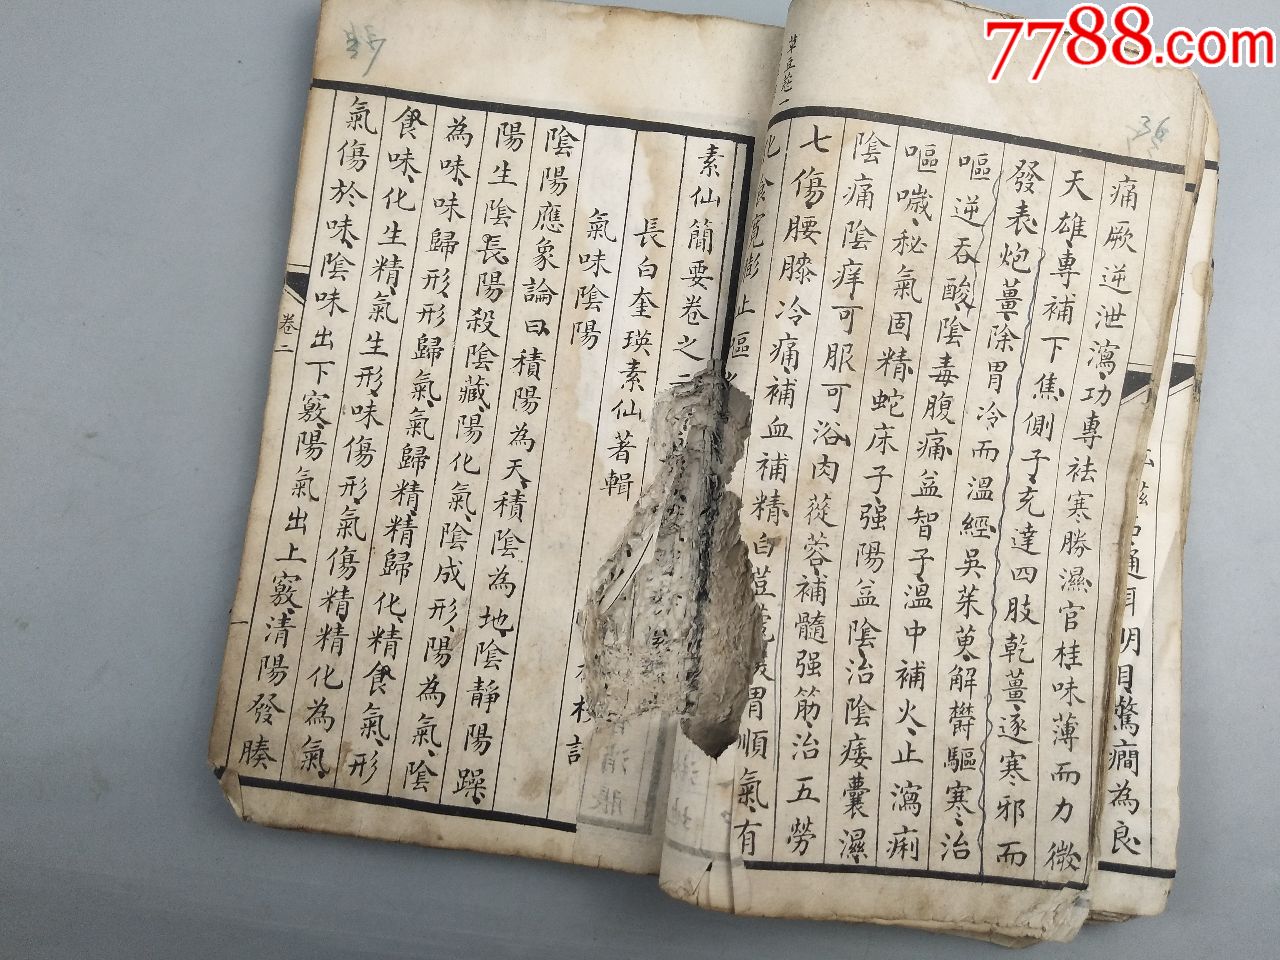 7788.com
36
草豆蔻
痛厥逆泄瀉、功專祛寒勝濕官桂味薄而力微
天雄、專補下焦、側子、充達四肢乾薑、逐寒邪而
發表、炮薑、除胃冷而溫經、吳茱萸、解欝驅寒、治
嘔逆吞酸、陰毒腹痛益智子、溫中補火、止瀉痢
嘔噦、秘氣固精、蛇床子、强陽益陰治陰痿囊濕、
陰痛陰痒可服可浴肉蓯蓉、補髓强筋、治五勞
七傷、腰膝冷痛、補血補精、白荳蔻暖胃順氣、有
化食寬膨止嘔
通耳明目驚癎為良
素仙簡要卷之二
長白奎瑛素仙著輯
校訂
氣味陰陽
陰陽應象論曰、積陽為天、積陰為地、陰靜陽躁、
陽生陰長、陽殺陰藏、陽化氣、陰成形、陽為氣、陰
為味、味歸形、形歸氣、氣歸精、精歸化、精食氣、形
食味、化生精、氣生形、味傷形、氣傷精、精化為氣、
氣傷於味、陰味出下竅、陽氣出上竅、清陽發腠
卷二
一